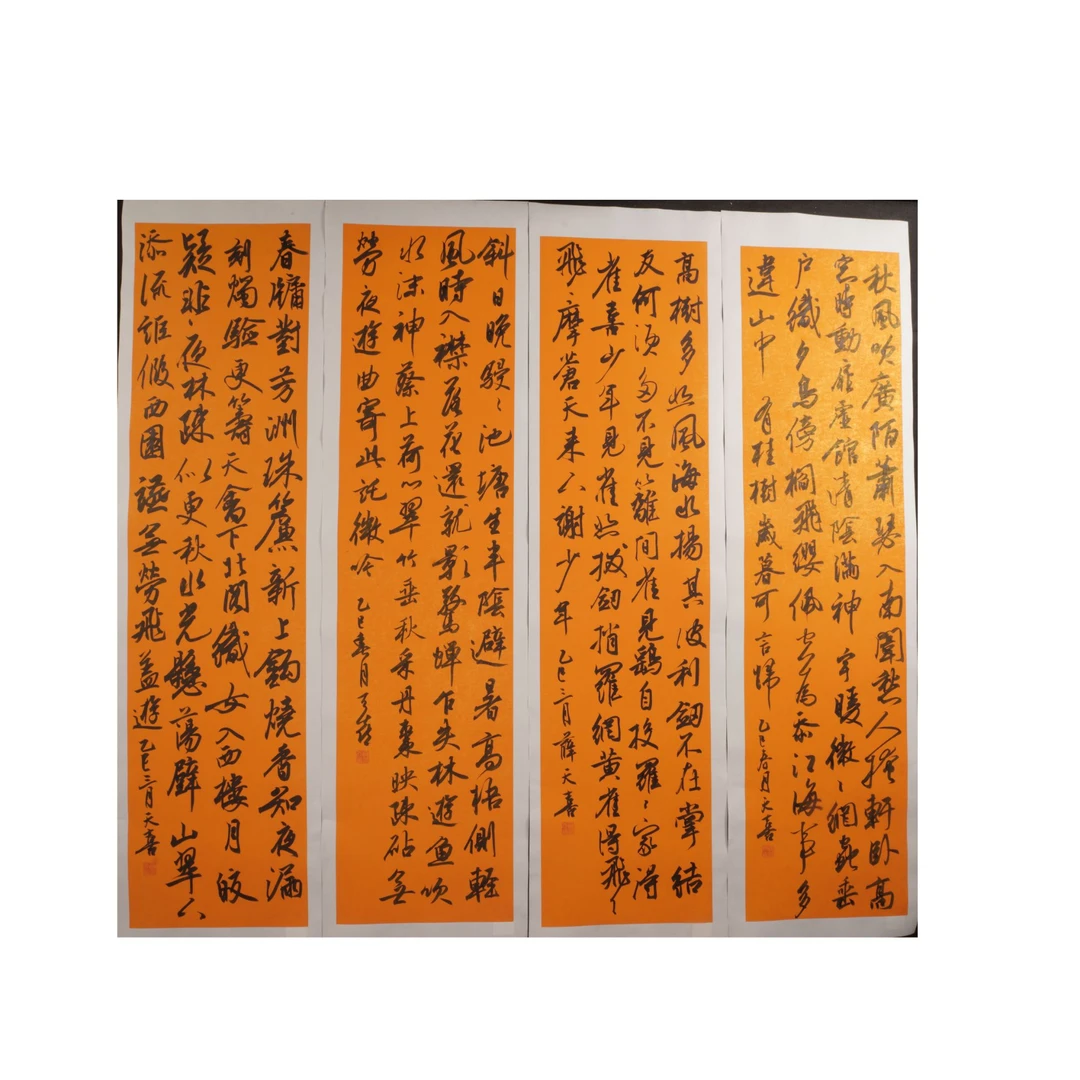 秋風吹廣陌蕭瑟入南闈愁人掩軒卧高
窓時動扉虛館清陰滿神宇曖微々網蟲垂
户織夕鳥傍櫩飛纓佩空為忝江海事多
違山中有桂樹歲暮可言歸
乙巳春月天喜
高樹多悲風海水揚其波利劔不在掌結
友何須多不見籬間雀見鷂自投羅々家得
雀喜少年見雀悲拔劔捎羅網黄雀得飛々
飛々摩蒼天来下謝少年
乙巳三月薛天喜
斜日晚駸々池塘生半陰避暑高梧側輕
風時入襟落花還就影驚蟬乍失林遊魚吹
水沫神蔡上荷心翠竹垂秋采丹棗映疎砧無
勞夜遊曲寄此託微吟
乙巳春月天喜
春牗對芳洲珠簾新上鈎燒香知夜漏
刻燭驗更籌天禽下北閣織女入西樓月皎
疑非夜林疎似更秋水光懸蕩壁山翠下
添流詎假西園讌無勞飛蓋遊
乙巳三月天喜